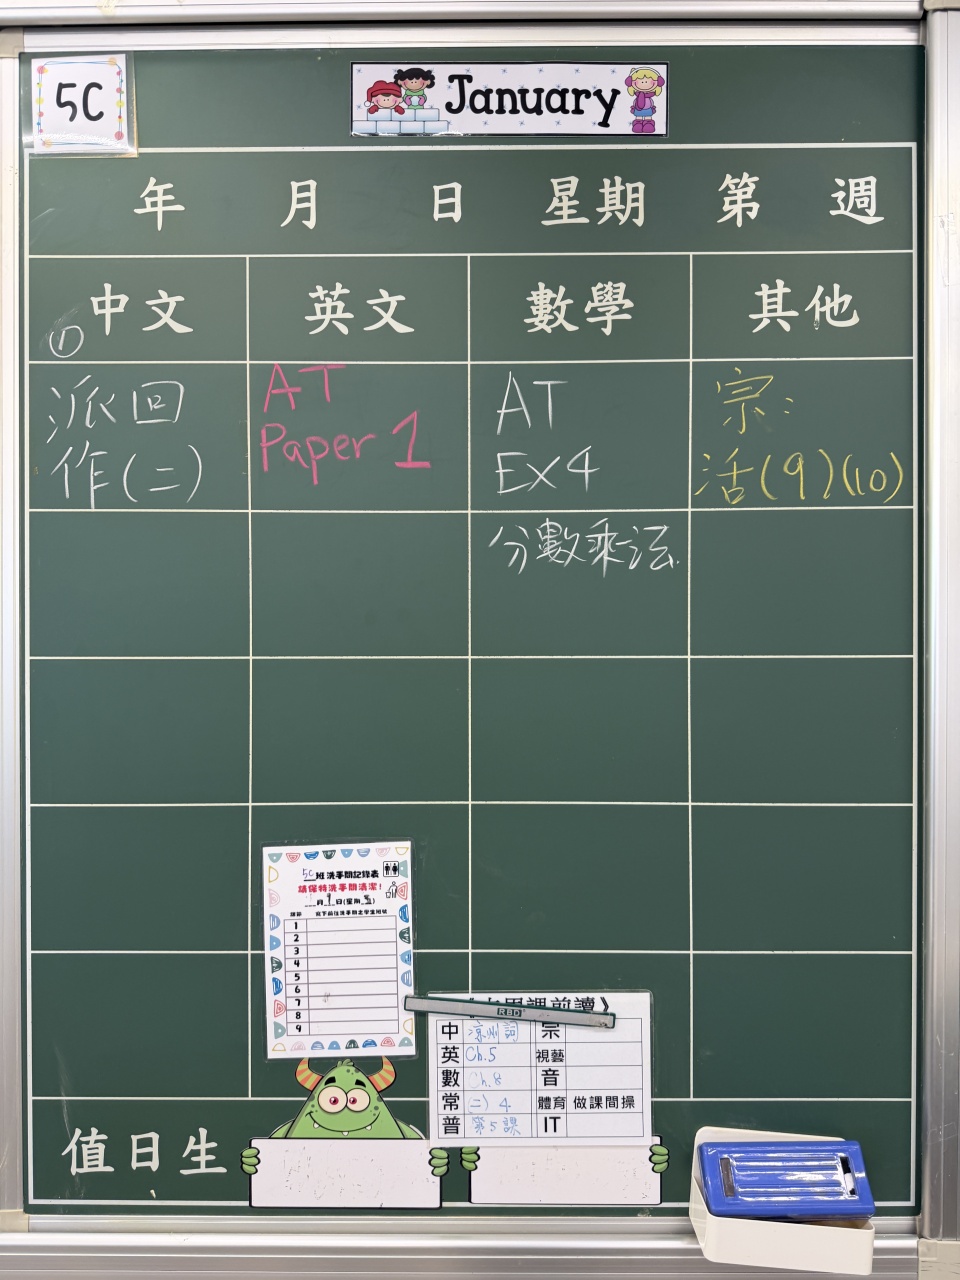 5C
January
年 月 日 星期 第 週
中文 英文 數學 其他
①
派回
作(二)
AT
Paper 1
AT
EX4
分數乘法
宗:
活(9)(10)
5C班洗手間記錄表
請保持洗手間清潔!
月9日(星期五)
1
2
3
4
5
6
7
8
9
RBD
課前讀》
中 涼州詞 宗
英 Ch.5 視藝
數 Ch.8 音
常 (二) 4 體育 做課間操
普 第5課 IT
值日生